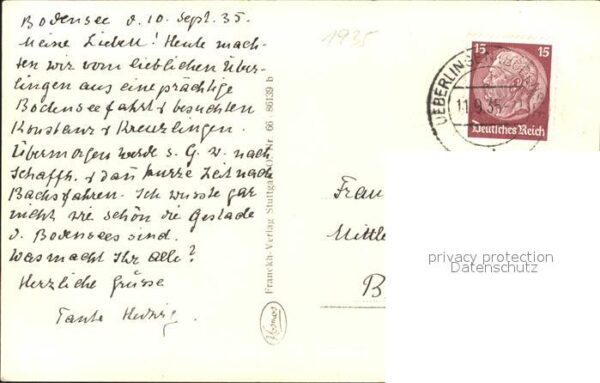 Bodensee d. 10. Sept. 35.
Meine Lieben! Heute mach-
ten wir vom lieblichen Über-
lingen aus eine prächtige
Bodenseefahrt & besuchten
Konstanz & Kreuzlingen.
Übermorgen werde s. G. w. nach
Schaffh. & dann kurze Zeit nach
Bachs fahren. Ich wusste gar
nicht wie schön die Gestade
d. Bodensees sind.
Was macht Ihr alle?
Herzliche Grüsse
Tante Hedwig.
1935
Franckh-Verlag Stuttgart-O. Nr. 66 86139 b
Kosmos
15 15
Deutsches Reich
UEBERLINGEN
11.9.35
Frau
Mittle
B
privacy protection
Datenschutz